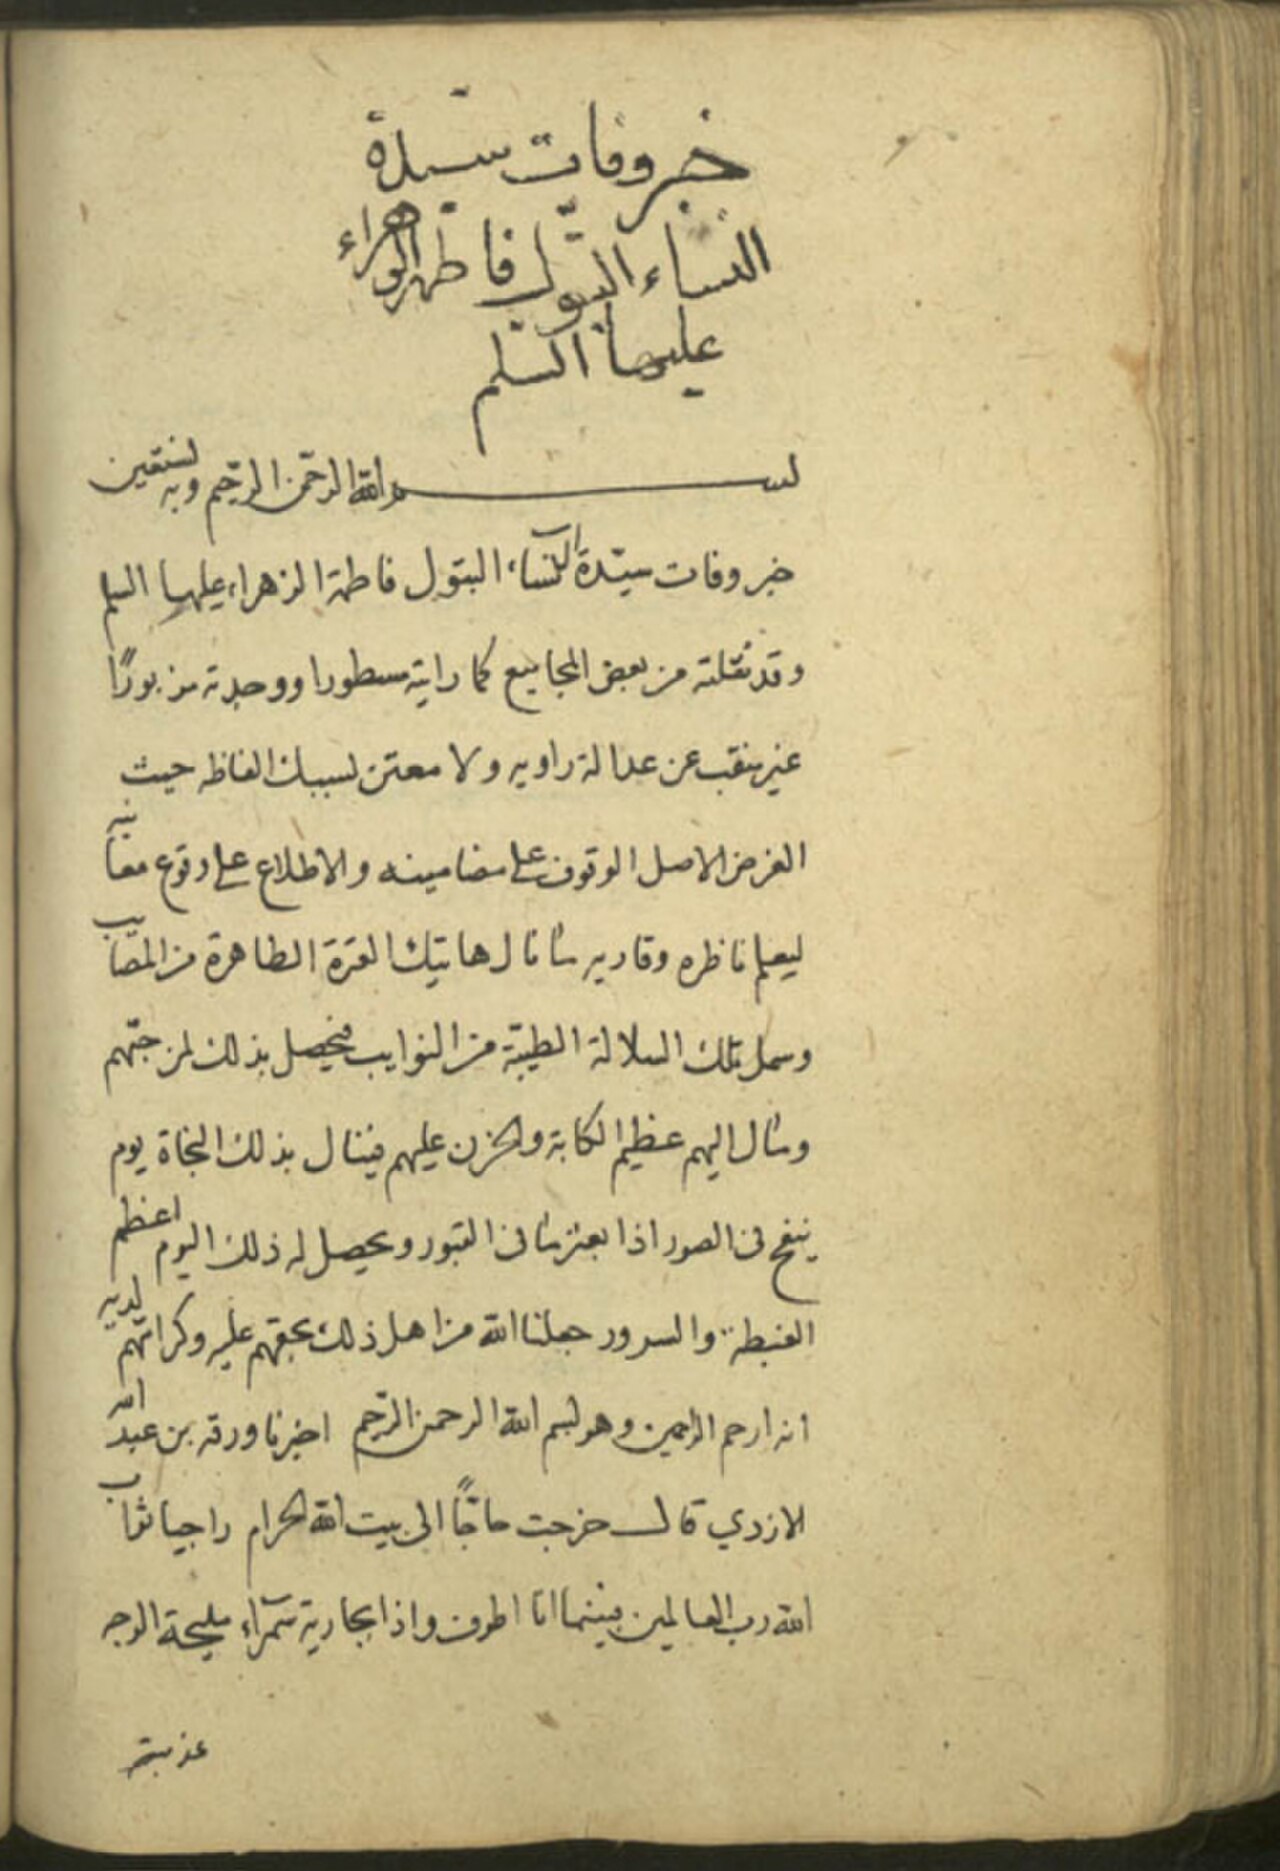 خبر وفات سيّدة
النساء البتّول فاطمة الزهراء
عليها السّلم
بسم الله الرحمن الرحيم وبه نستعين
خبر وفات سيّدة النساء البتول فاطمة الزهراء عليها السلم
وقد نقلته من بعض المجاميع كما رايته مسطورا ووجدته مزبورًا
غير منقب عن عدالة راويه ولا معتن لسبك الفاظه حيث
الغرض الاصل الوقوف على مضامينه والاطلاع على وقوع معانيه
ليعلم ناظره وقاريه ما نال هاتيك العترة الطاهرة من المصايب
وسمل تلك السلالة الطيبة من النوايب فيحصل بذلك لمن حبّهم
ومال اليهم عظيم الكابة والحزن عليهم فينال بذلك النجاة يوم
ينفخ في الصور اذا بعثر ما في القبور ويحصل له ذلك اليوم اعظم
الغبطة والسرور جعلنا الله من اهل ذلك بحقهم عليه وكرامتهم لديه
انه ارحم الراحمين وهو بسم الله الرحمن الرحيم اخبرنا ورقه بن عبد الله
الازدي قال خرجت حاجًا الى بيت الله الحرام راجيا ثواب
الله رب العالمين بينما انا اطوف واذا بجارية سمراء مليحة الوجه
عذبة